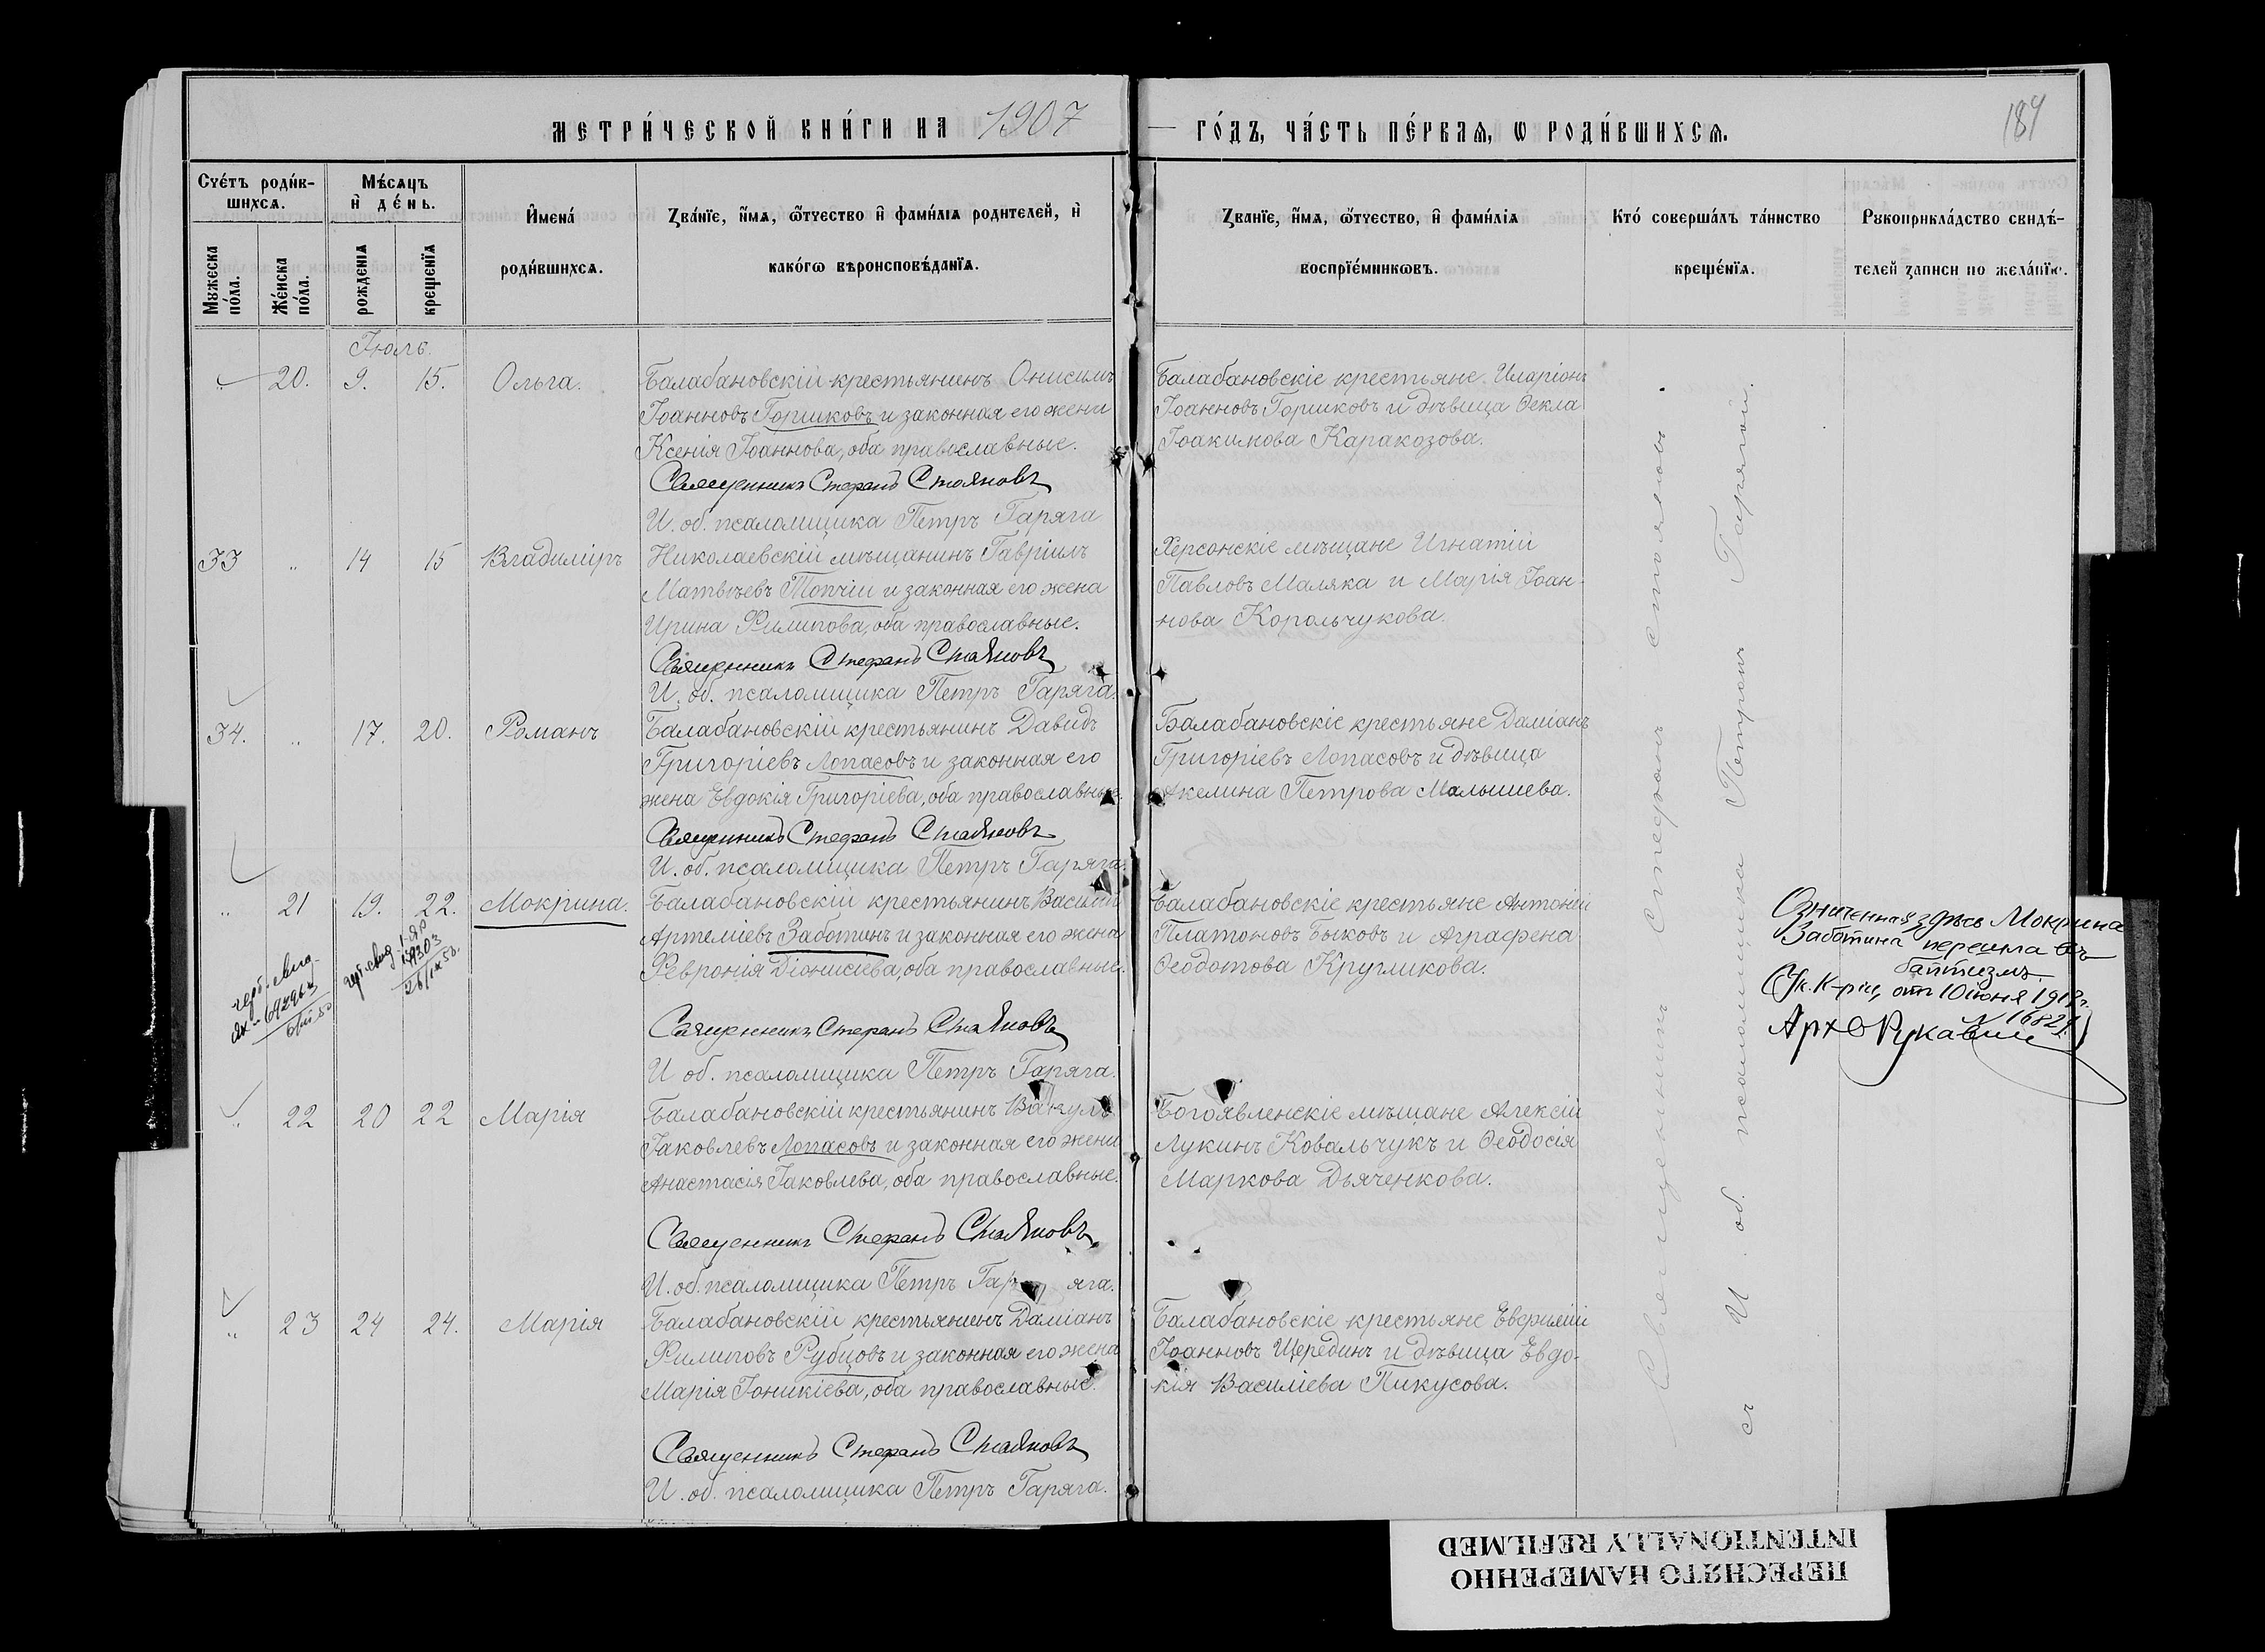 МЕТРИ́ЧЕСКОЙ КНИ́ГИ НА 1907
ГО́ДЪ, ЧА́СТЬ ПЕ́РВАѦ, Ѡ РОДИ́ВШИХСѦ.
184
Сче́тъ роди́в-
шихсѧ.
Мѣ́сѧцъ
и҆ де́нь.
Мꙋжеска по́ла.
Же́нска по́ла.
рожденїѧ
крещенїѧ
И҆мена́
роди́вшихсѧ.
Зва́нїе, и҆́мѧ, ѻ҆́тчество и҆ фами́лїѧ родителей, и҆
како́гѡ вѣроисповѣ́данїѧ.
Званїе, и҆́мѧ, ѻ҆́тчество, и҆ фами́лїѧ
воспрїе́мникѡвъ.
Кто́ соверша́лъ та́инство
креще́нїѧ.
Рꙋкоприкла́дство свидѣ́-
телей записи по жела́нїю.
Іюль.
„ 20. 9. 15. Ольга.
Балабановскій крестьянинъ Онисимъ
Іоанновъ Горшковъ и законная его жена
Ксенія Іоаннова, оба православные.
Священникъ Стефанъ Стояновъ
И. об. псаломщика Петръ Гаряга
Балабановскіе крестьяне Иларіонъ
Іоанновъ Горшковъ и дѣвица Ѳекла
Іоакимова Каракозова.
33 „ 14 15 Владиміръ
Николаевскій мѣщанинъ Гавріилъ
Матвѣевъ Топчій и законная его жена
Ирина Филипова, оба православные.
Священникъ Стефанъ Стояновъ
И. об. псаломщика Петръ Гаряга.
Херсонскіе мѣщане Игнатій
Павловъ Маляка и Марія Іоан-
нова Корольчукова.
34. „ 17. 20. Романъ
Балабановскій крестьянинъ Давидъ
Григоріевъ Лопасовъ и законная его
жена Евдокія Григоріева, оба православные.
Священникъ Стефанъ Стояновъ
И. об. псаломщика Петръ Гаряга.
Балабановскіе крестьяне Даміанъ
Григоріевъ Лопасовъ и дѣвица
Акелина Петрова Малышева.
„ 21 19. 22. Мокрина.
Балабановскій крестьянинъ Василій
Артеміевъ Заботинъ и законная его жена
Февронія Діонисіева, оба православные.
Священникъ Стефанъ Стояновъ
И об. псаломщика Петръ Гаряга.
Балабановскіе крестьяне Антоній
Платоновъ Быковъ и Аграфена
Ѳеодотова Кругликова.
Означенная здѣсь Мокрина
Заботина перешла въ
баптизмъ
Ук. К-ріи, отъ 10 іюня 1912 г.
№ 16824
„ 22 20 22 Марія
Балабановскій крестьянинъ Вакулъ
Іаковлевъ Лопасовъ и законная его жена
Анастасія Іаковлева, оба православные.
Священникъ Стефанъ Стояновъ
И. об. псаломщика Петръ Гаряга.
Богоявленскіе мѣщане Алексій
Лукинъ Ковальчукъ и Ѳеодосія
Маркова Дьяченкова.
„ 23 24 24. Марія
Балабановскій крестьянинъ Даміанъ
Филиповъ Рубцовъ и законная его жена
Марія Іоникіева, оба православные.
Священникъ Стефанъ Стояновъ
И. об. псаломщика Петръ Гаряга.
Балабановскіе крестьяне Евфимій
Іоанновъ Щерединъ и дѣвица Евдо-
кія Василіева Пикусова.
Священникъ Стефанъ Стояновъ
съ И. об. псаломщика Петромъ Гарягой.
ПЕРЕСНЯТО НАМЕРЕННО
INTENTIONALLY REFILMED